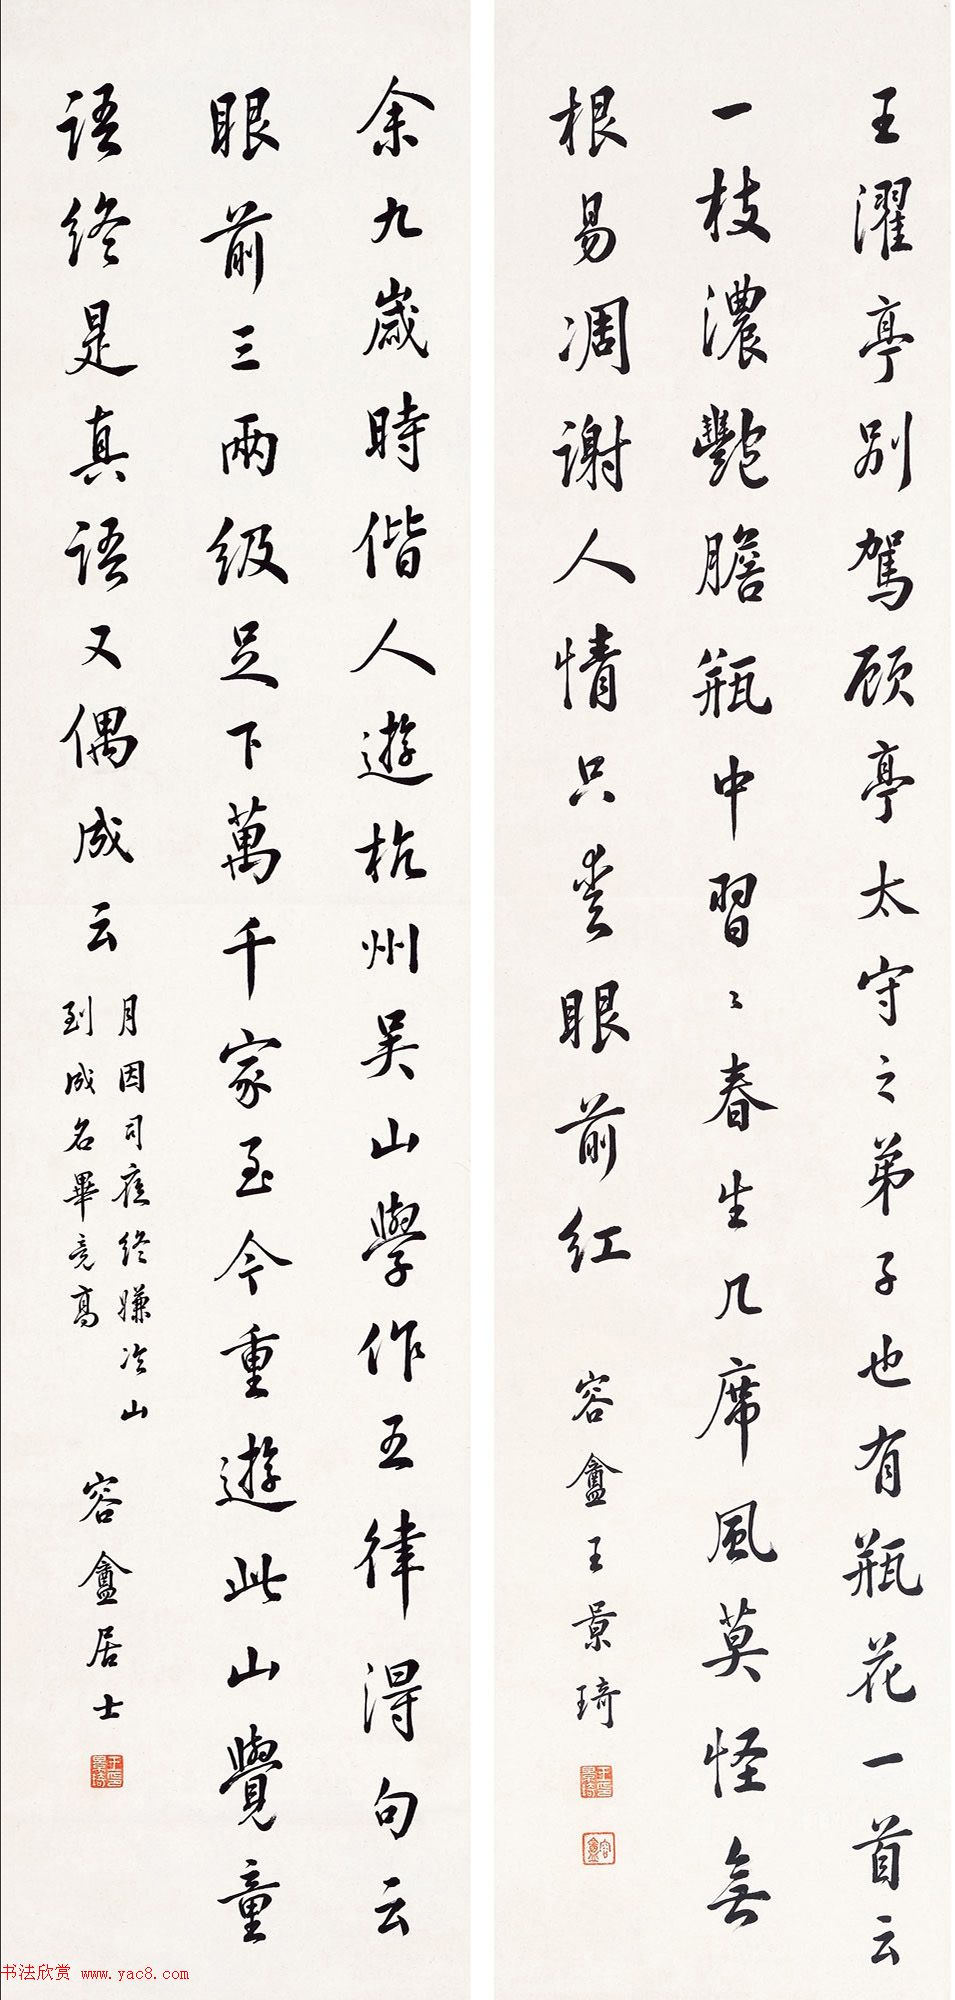 王濯亭別駕顧亭太守之弟子也有瓶花一首云
一枝濃艷膽瓶中習〻春生几席風莫怪無
根易凋謝人情只愛眼前紅
容盦王景琦
余九歲時偕人遊杭州吴山學作五律得句云
眼前三兩級足下萬千家至今重遊此山覺童
語終是真語又偶成云
月因司夜終嫌冷山
到成名畢竟高
容盦居士
书法欣赏 www.yac8.com